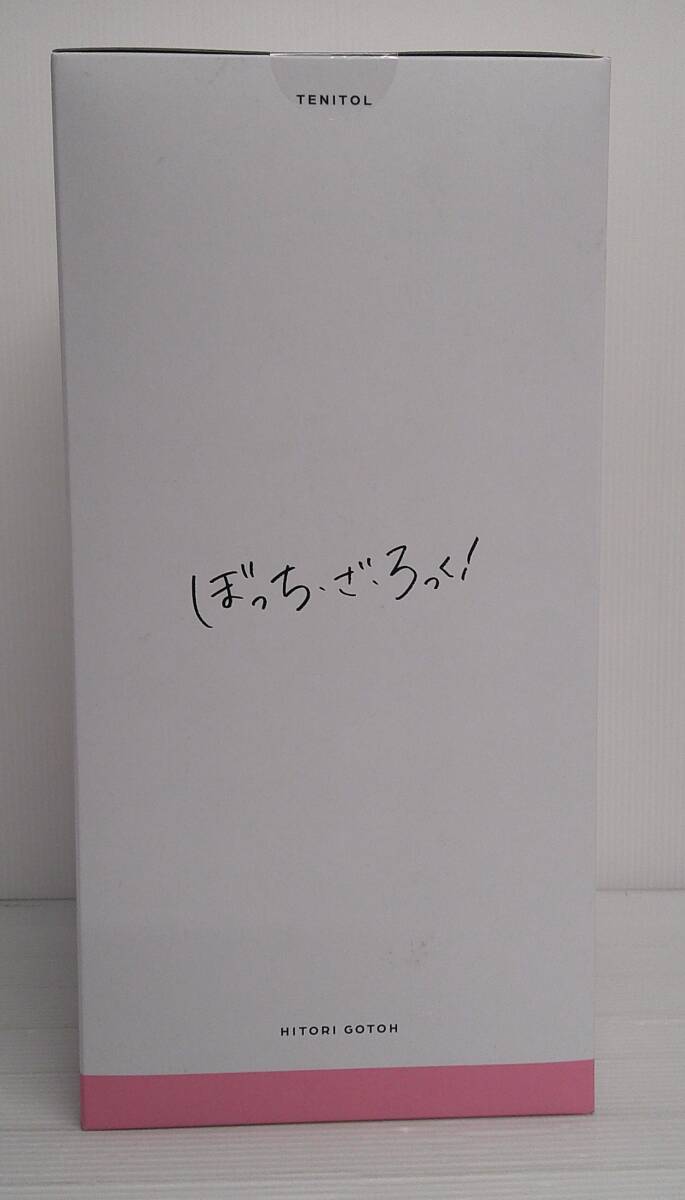 TENITOL
ぼっち・ざ・ろっく!
HITORI GOTOH